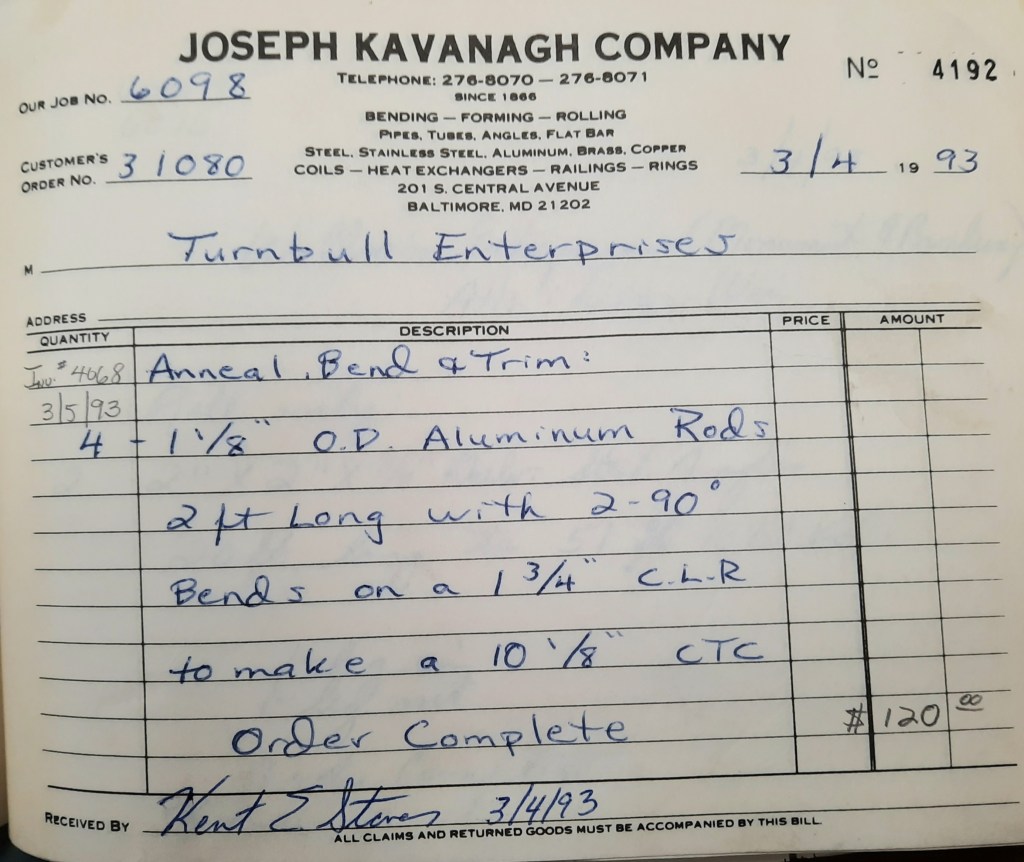 JOSEPH KAVANAGH COMPANY
TELEPHONE: 276-8070 — 276-8071
Nº 4192
OUR JOB NO. 6098
SINCE 1866
BENDING — FORMING — ROLLING
PIPES, TUBES, ANGLES, FLAT BAR
STEEL, STAINLESS STEEL, ALUMINUM, BRASS, COPPER
CUSTOMER'S ORDER NO. 31080
COILS — HEAT EXCHANGERS — RAILINGS — RINGS
3/4 19 93
201 S. CENTRAL AVENUE
BALTIMORE, MD 21202
M Turnbull Enterprises
ADDRESS
QUANTITY DESCRIPTION PRICE AMOUNT
Inv. # 4068 Anneal, Bend & Trim:
3/5/93
4 - 1 1/8" O.D. Aluminum Rods
2 ft Long with 2-90°
Bends on a 1 3/4" C.L.R
to make a 10 1/8" CTC
Order Complete $ 120 00
RECEIVED BY Kent E 3/4/93
ALL CLAIMS AND RETURNED GOODS MUST BE ACCOMPANIED BY THIS BILL